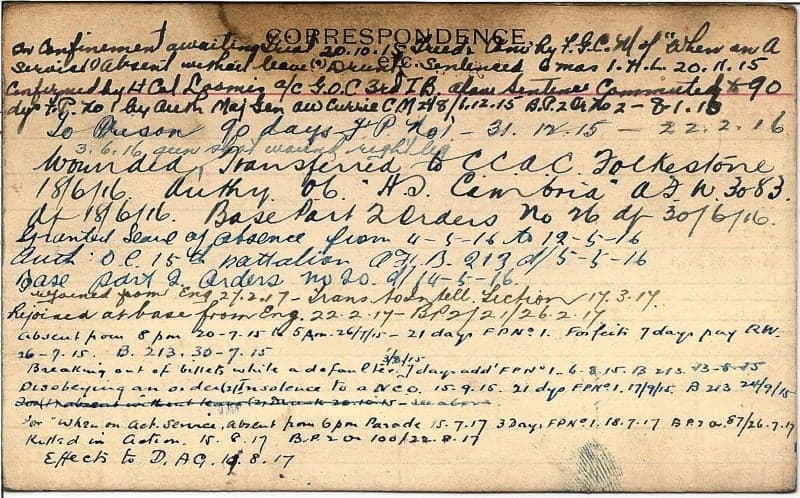 CORRESPONDENCE,
etc.
In Confinement awaiting Trial 20.10.15 Tried & Con by F.G.C.M of "When on A
Service (1) Absent without leave (2) Drunk Sentenced 6 mos I.H.L. 20.11.15
Confirmed by Lt Col Loomis a/c G.O.C 3rd I.B. Sentence Commuted to 90
dys F.P. No 1 by Auth Maj Gen AW Currie C.M 248/6.12.15 B.P.2 Or No 2 - 8.1.16
To Prison 90 days F.P. No 1 - 31. 12.15 - 22.2.16
3.6.16 gun shot wound right leg
Wounded, Transferred to C.C.A.C. Folkestone
18/6/16. Authy. "H.S. Cambria" A.F.W. 3083.
df 18/6/16. Base Part 2 Orders No 26 df 30/6/16.
Granted leave of absence from 4-5-16 to 12-5-16
Auth: O.C. 15th Battalion A.F.B. 213 d/5-5-16
Base Part 2 Orders No 20. d/14-5-16.
rejoined from Eng 27.2.17 - Trans to Section 17.3.17.
Rejoined at base from Eng. 22-2-17 - B.P.2/21/26.2.17
Absent from 8 pm 20-7-15 to 5 Am. 26/7/15 - 21 days F P No 1. Forfeits 7 days pay R.W.
26-7.15. B. 213. 30-7.15
Breaking out of billets while a defaulter 3/8/15 7 days add' F P No 1 - 6-8.15. B 213. 13-8-15
Disobeying an order (2) Insolence to a NCO. 15.9.15. 21 dys F P No 1. 17/9/15. B 213 24/9/15
absent without leave (2) Drunk 20.10.15 - see above
For "When on Act. Service, absent from 6 pm Parade 15.7.17 3 Days, F P No 1. 18.7.17 B P.2 O. 87/26.7.17
Killed in Action. 15. 8.17 B.P.2 O 100/22.8.17
Effects to D.A.G. 8.17